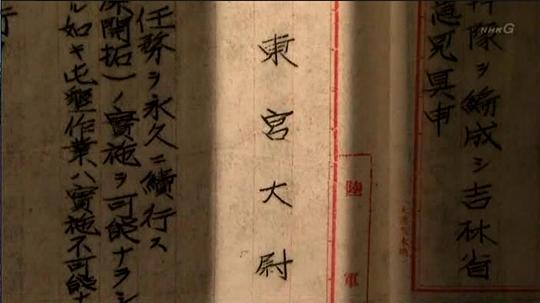 幹隊ヲ編成シ吉林省
意見具申
陸軍
東宮大尉
任務ヲ永久ニ續行ス
開拓)ノ實施ヲ可能ナラシ
ル如キ屯墾作業ハ實施不可能ナ
行
NHK G